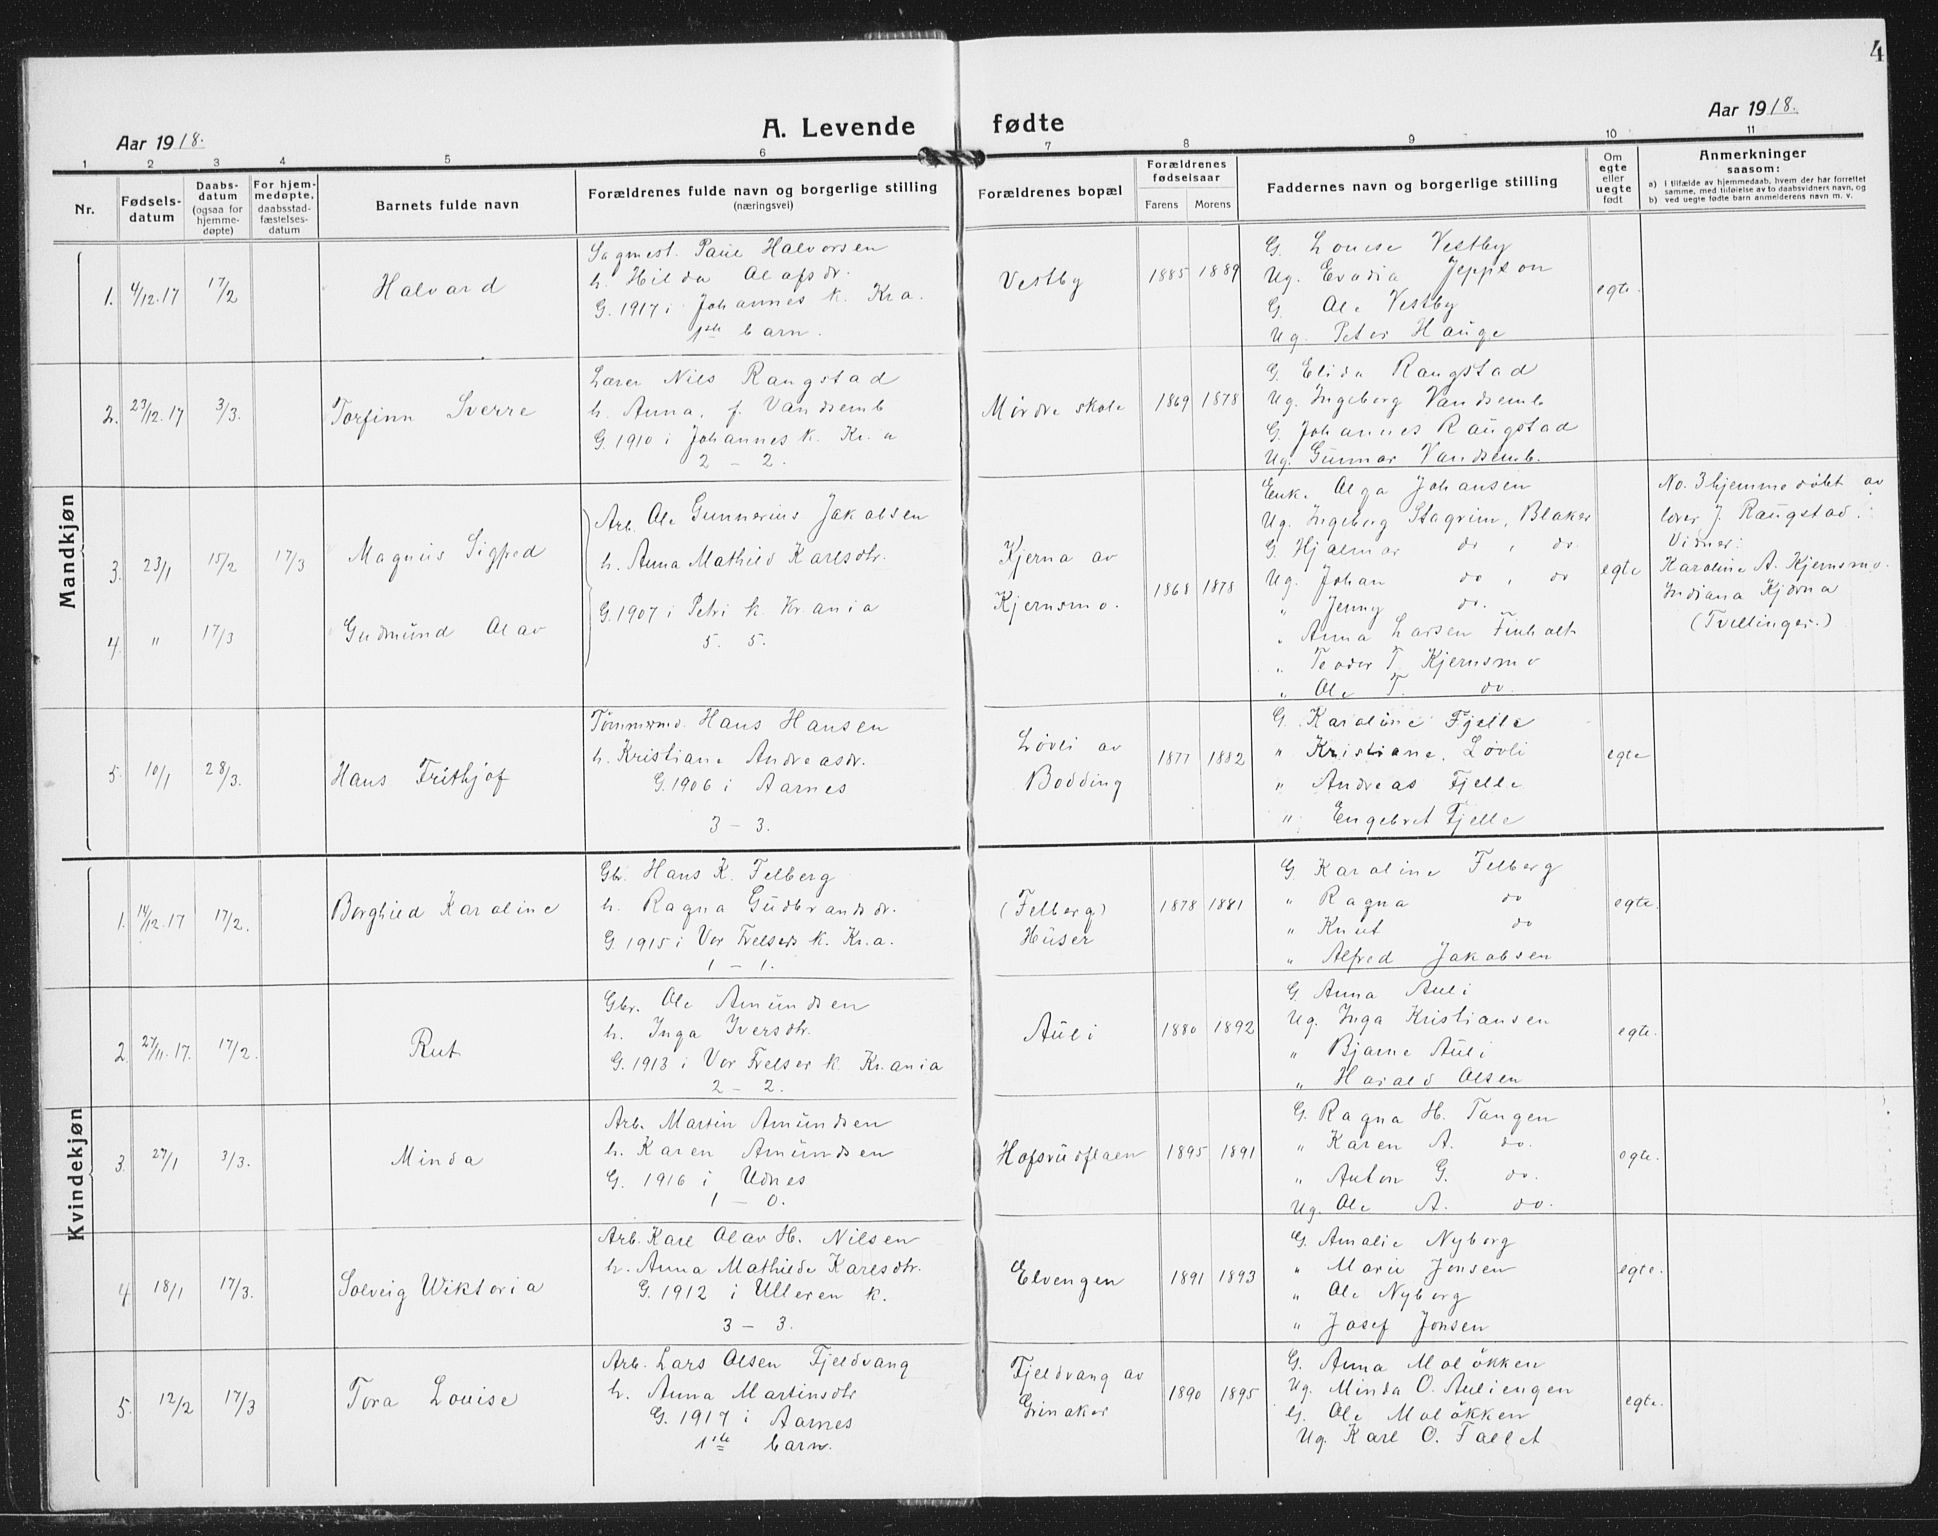 4
Aar 1918.
A. Levende fødte
Aar 1918.
1 2 3 4 5 6 7 8 9 10 11
Nr.
Fødsels-
datum
Daabs-
datum
(ogsaa for
hjemme-
døpte)
For hjem-
medøpte,
daabsstad-
fæstelses-
datum
Barnets fulde navn
Forældrenes fulde navn og borgerlige stilling
(næringsvei)
Forældrenes bopæl
Forældrenes
fødselsaar
Farens Morens
Faddernes navn og borgerlige stilling
Om
egte
eller
uegte
født
Anmerkninger
saasom:
a) i tilfælde av hjemmedaab, hvem der har forrettet
samme, med tilføielse av to daabsvidners navn, og
b) ved uegte fødte barn anmelderens navn m. v.
Mandkjøn
1. 4/12.17 17/2
Halvard
Sagmest. Paul Halvorsen
h. Hilda Olafsdr.
G. 1917 i Johannes k. Kr.a.
1ste barn.
Vestby
1885 1889
G. Louise Vestby
Ug. Evadia Jeppson
G. Ole Vestby
Ug. Peter Hauge
egte.
2. 23/12.17 3/3.
Torfinn Sverre
Lærer Nils Raugstad
h. Anna, f. Vandsemb
G. 1910 i Johannes k. Kr.a
2 – 2.
Mørdre skole
1869 1878
G. Elida Raugstad
Ug. Ingeborg Vandsemb
G. Johannes Raugstad
Ug. Gunnar Vandsemb.
3. 23/1 15/2 17/3
Magnus Sigfred
4. " 17/3
Gudmund Olav
Arb. Ole Gunnerius Jakobsen
h. Anna Mathild Karlsdtr.
G. 1907 i Petri k. Kr.ania
5. 5.
Kjerna av
Kjernsmo.
1868 1878
Enk. Olga Johansen
Ug. Ingeborg Stagrim, Blaker
G. Hjalmar do , do.
Ug. Johan do , do
" Jenny do.
" Anna Larsen Finholt
" Teodor T. Kjernsmo
" Ole T. do.
egte
No. 3 hjemmedøbt av
lærer J. Raugstad.
Vidner:
Karoline A. Kjernsmo.
Indiana Kjerna
(Tvillinger.)
5. 10/1 28/3.
Hans Frithjof
Tømmermd. Hans Hansen
h. Kristiane Andreasdr.
G. 1906 i Aarnes
3 – 3.
Løvli av
Bodding
1877 1882
G. Karoline Fjelle
" Kristiane Løvli
" Andreas Fjelle
" Engebret Fjelle
egte
Kvindekjøn
1. 14/12.17 17/2.
Borghild Karoline
Gbr. Hans K. Felberg
h. Ragna Gudbrandsdr.
G. 1915 i Vor Frelsers k. Kr.a.
1 – 1.
(Felberg)
Huser
1878 1881
G. Karoline Felberg
" Ragna do
" Knut do
" Alfred Jakobsen
egte.
2. 27/11.17. 17/2.
Rut
Gbr. Ole Amundsen
h. Inga Iversdtr.
G. 1913 i Vor Frelser k. Kr.ania
2 – 2.
Auli
1880 1892
G. Anna Auli
Ug. Inga Kristiansen
" Bjarne Auli
" Harald Olsen
egte.
3. 27/1 3/3.
Minda
Arb. Martin Amundsen
h. Karen Amundsen
G. 1916 i Udnes
1 – 0.
Hofsrudflaen
1895 1891
G. Ragna H. Tangen
" Karen A. do.
" Anton G. do.
Ug. Ole A. do.
egte.
4 18/1 17/3.
Solveig Wiktoria
Arb. Karl Olav H. Nilsen
h. Anna Mathilde Karlsdtr.
G. 1912 i Ulleren k.
3 – 3.
Elvengen
1891 1893
G. Amalie Nyborg
" Marie Jonsen
" Ole Nyborg
" Josef Jonsen
egte.
5. 12/2 17/3
Tora Louise
Arb. Lars Olsen Fjeldvang
h. Anna Martinsdtr
G. 1917 i Aarnes
1ste barn.
Fjeldvang av
Grinaker
1890 1895
G. Anna Moløkken
Ug. Minda O. Auliengen
G. Ole Moløkken
Ug. Karl O. Fallet
egte.